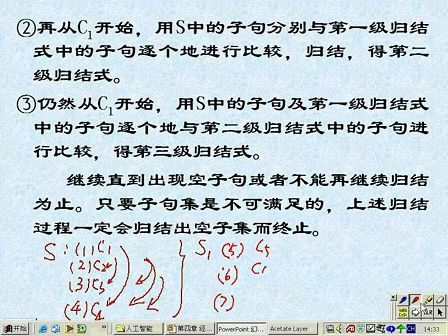 ②再从C₁开始，用S中的子句分别与第一级归结
式中的子句逐个地进行比较，归结，得第二
级归结式。
③仍然从C₁开始，用S中的子句及第一级归结式
中的子句逐个地与第二级归结式中的子句进
行比较，得第三级归结式。
继续直到出现空子句或者不能再继续归结
为止。只要子句集是不可满足的，上述归结
过程一定会归结出空子集而终止。
S: (1) C₁ S₁ (5) C₅
(2) C₂ (6) C
(3) C₃ (7)
(4) C₄
开始 人工智能 第四章 经... PowerPoint 幻... Acetate Layer CH 14:33